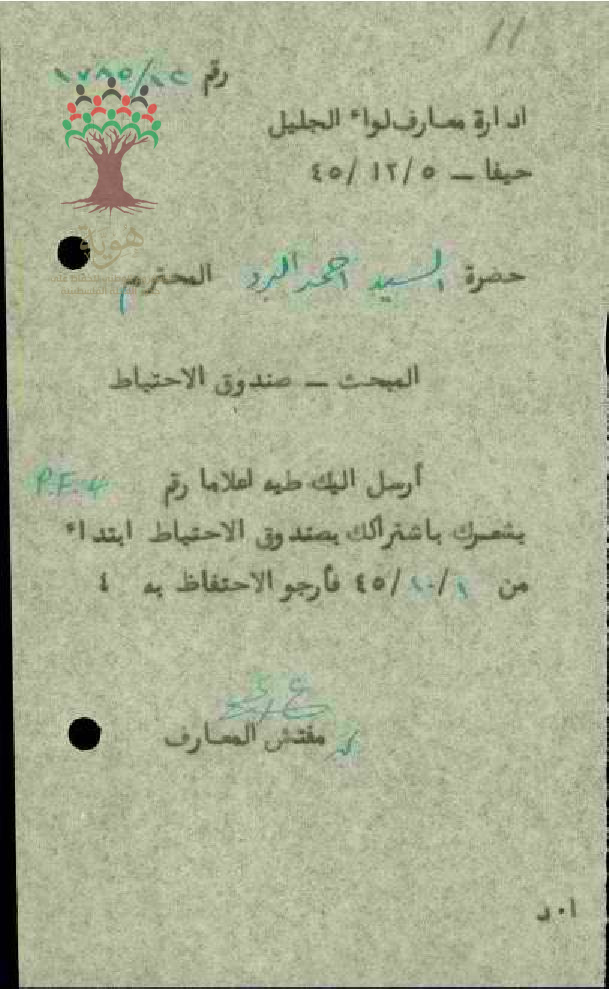 11
رقم ١٧٨٥/١٤
ادارة معارف لواء الجليل
حيفا — ٤٥/١٢/٥
هوية
حضرة السيد احمد البرد المحترم
المبحث — صندوق الاحتياط
أرسل اليك طيه اعلاما رقم P.F. 4
يشعرك باشتراكك بصندوق الاحتياط ابتداء
من ٤٥/١٠/١ فأرجو الاحتفاظ به ٤
مفتش المعارف
ا٠د